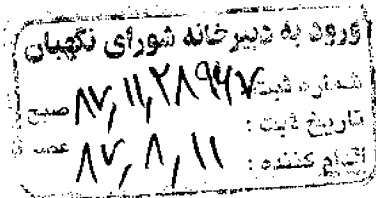 ورود به دبیرخانه شورای نگهبان
شماره ثبت:
صبح
تاریخ ثبت: ۸۷/۸/۱۱
عصر
اقدام کننده: